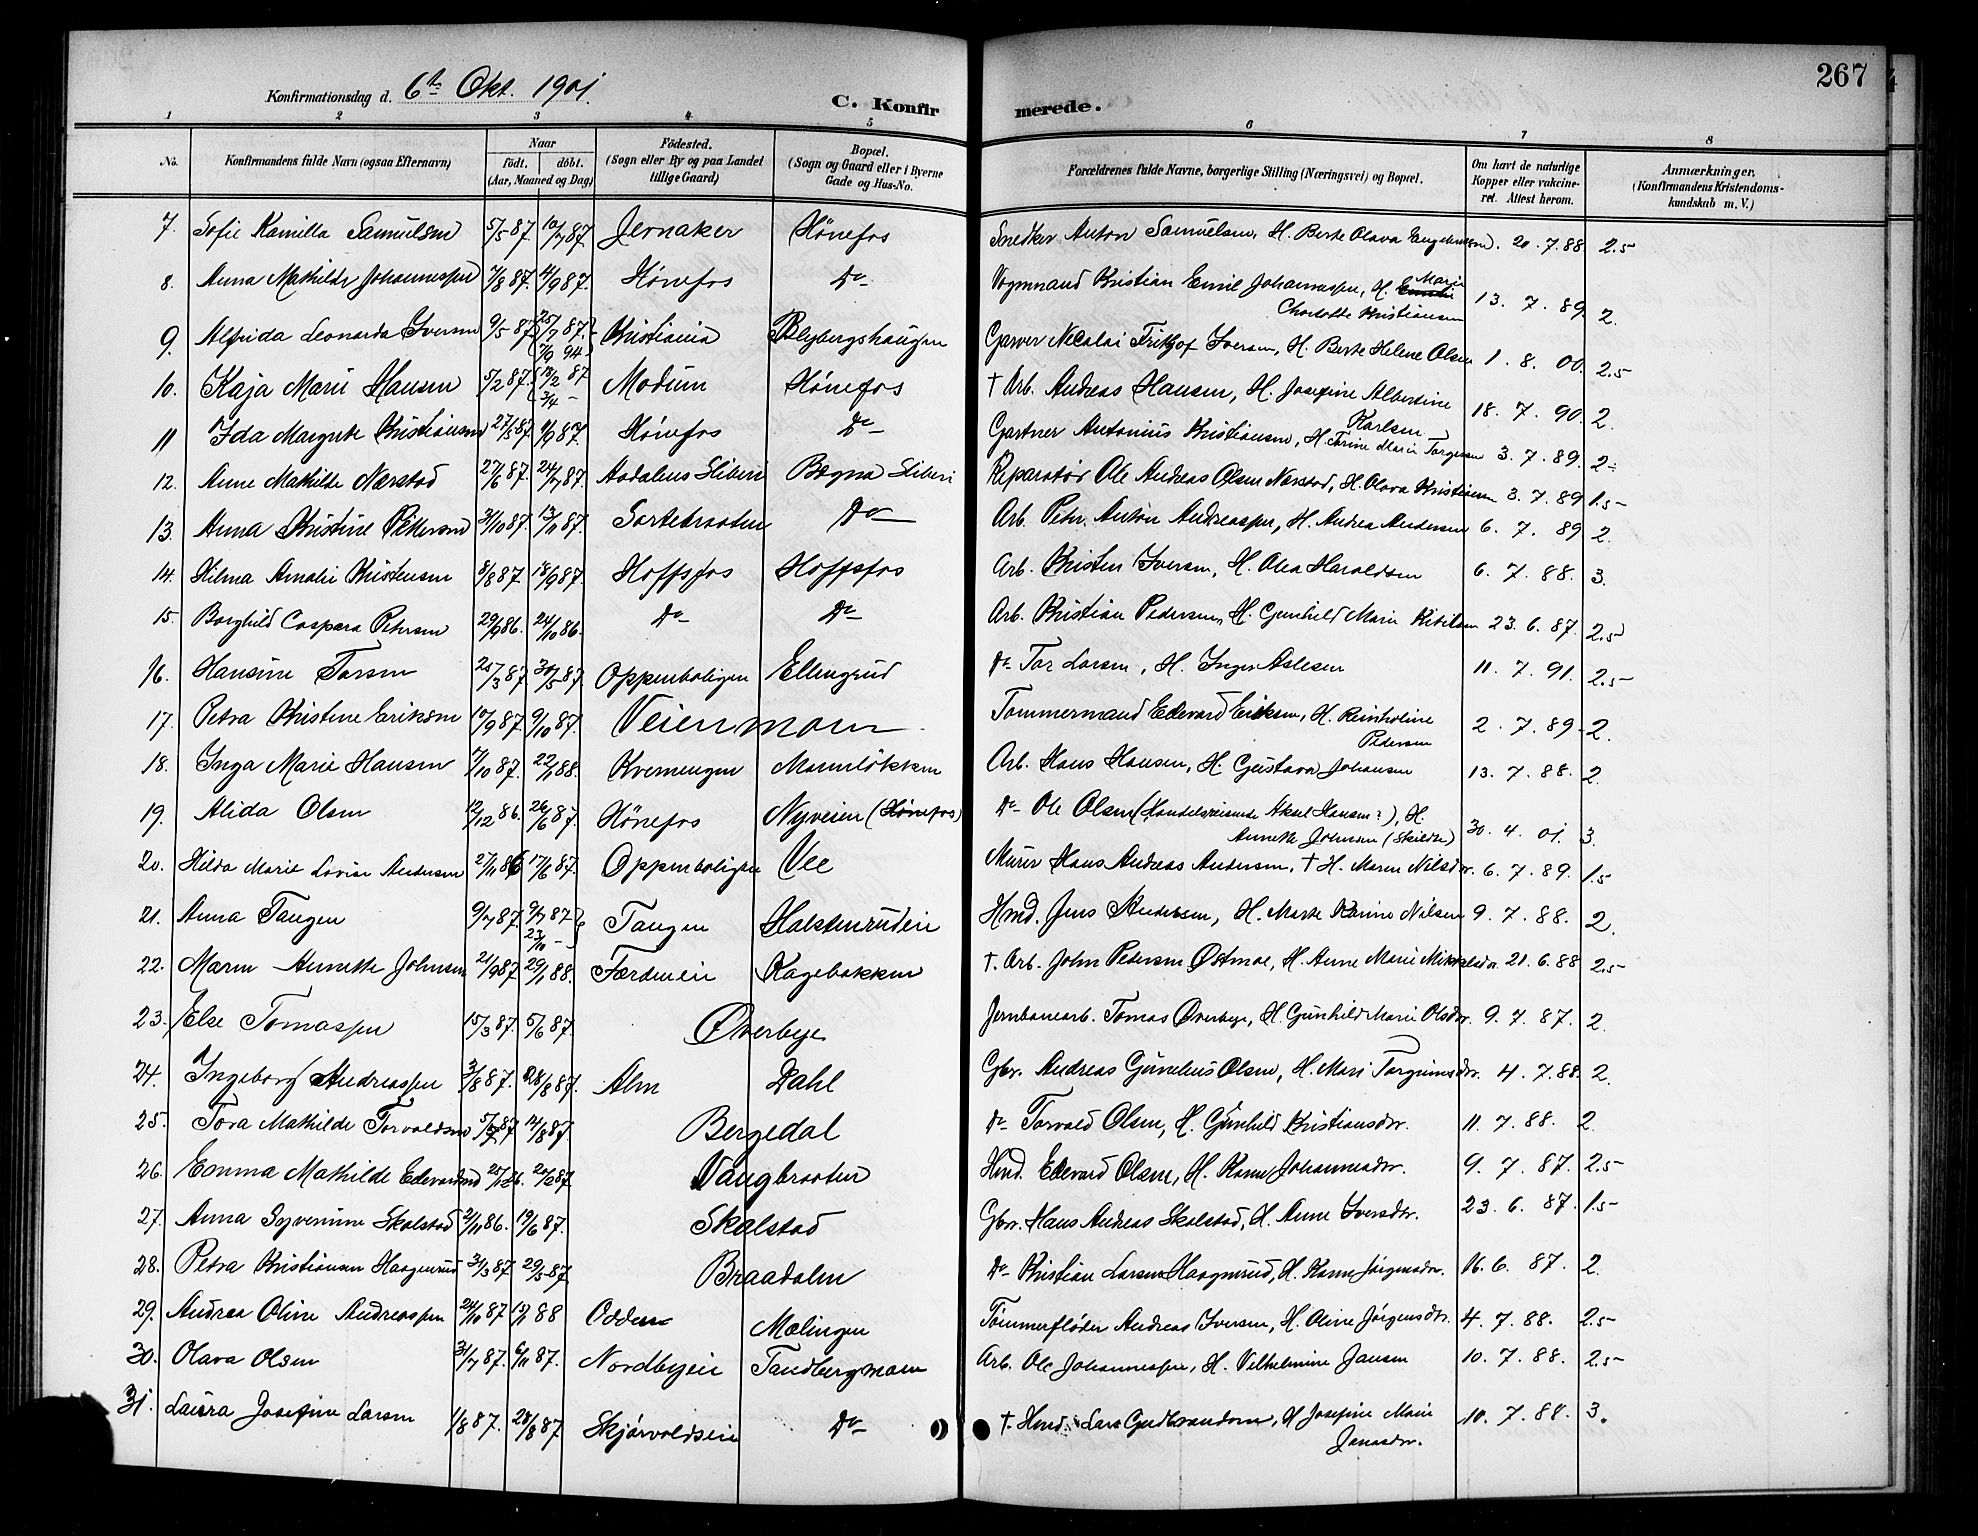 267
Konfirmationsdag d. 6te Okt. 1901.
C. Konfirmerede.
1 2 3 4 5 6 7 8
No. Konfirmandens fulde Navn (ogsaa Efternavn) Naar født. døbt. (Aar, Maaned og Dag) Fødested. (Sogn eller By og paa Landet tillige Gaard) Bopæl. (Sogn og Gaard eller i Byerne Gade og Hus-No. Forældrenes fulde Navne, borgerlige Stilling (Næringsvei) og Bopæl. Om havt de naturlige Kopper eller vakcineret. Attest herom. Anmærkninger. (Konfirmandens Kristendomskundskab m. V.)
7. Sofie Kamilla Samuelsen 5/5 87 10/7 87. Jevnaker Hönefos Snedker Anton Samuelsen, H. Berte Olava Engebretsen. 20.7.88 2.5
8. Anna Mathilde Johannessen 7/8 87. 4/9 87. Hönefos Do Vognmand Kristian Emil Johannessen, H. Marie Charlotte Kristiansen 13.7.89 2.
9. Alfrida Leonarda Iversen 9/5 87. 25/7 87. (7/9 94) Kristiania Blybergshaugen Garver Nicolai Fritjof Iversen, H. Berte Helene Olsen 1.8.00. 2.5
10. Kaja Marie Hansen 5/2 87. 13/2 87 3/4 - Modum Hönefos † Arb. Andreas Hansen, H. Josefine Albertine Karlsen 18.7.90. 2.
11 Ida Margrete Kristiansen 27/5 87. 11/9 87. Hönefos Do Gartner Antonius Kristiansen, H. Trine Marie Torgersen 3.7.89. 2-
12. Anne Mathilde Nærstad 27/6 87. 24/7 87. Aadalens Sliberi Begna Sliberi Reparatör Ole Andreas Olsen Nærstad, H. Olava Kristiansen 3.7.89 1.5
13. Anna Kristine Pettersen 31/10 87. 13/11 87. Sortebraaten Do Arb. Petter Anton Andreassen, H. Andrea Andersen 6.7.89 2.
14. Hilma Amalie Kristensen 8/8 87. 18/9 87. Hoffsfos Hoffsfos Arb. Kristen Iversen, H. Olea Haraldsen 6.7.88. 3.
15. Borghild Caspara Petersen 29/9 86. 24/10 86. Do Do Arb. Kristian Pedersen, H. Gunhild Marie Kittilsen 23.6.87. 2.5
16. Hansine Torsen 25/3 87. 30/5 87. Oppenboligen Ellingrud Do Tor Larsen, H. Inger Aslesen 11.7.91. 2.5
17. Petra Kristine Eriksen 17/9 87. 9/10 87. Veienmoen Tömmermand Edevard Eriksen, H. Reinholine Pedersen 2.7.89 2.
18. Inga Marie Hansen 7/10 87. 22/1 88. Kvernengen Mannlökken Arb. Hans Hansen, H. Gustava Johansen 13.7.88. 2.
19. Alida Olsen 12/12 86. 26/6 87. Hönefos Nyveien (Hönefos) Do Ole Olsen (Handelsreisende Aksel Hansen?), H. Annette Johnsen (Skilte) 30.4.01. 3.
20. Hilda Marie Lovise Andersen 27/11 86 17/6 87. Oppenboligen Vee Murer Hans Andreas Andersen, † H. Maren Nilsdtr. 6.7.89. 1.5
21. Anna Tangen 9/7 87. 9/7 87 23/10 - Tangen Halstenrudeie Hmd. Jens Andersen, H. Marte Karine Nilsen 9.7.88. 2.
22. Maren Annette Johnsen 21/9 87. 29/1 88. Færdeneie Kagebakken †. Arb. John Pedersen Östmoe, H. Anne Marie Mikkelsdtr. 21.6.88 2.5
23. Else Tomassen 15/3 87. 5/6 87. Overbye Jernbanearb. Tomas Overbye, H. Gunhild Marie Olsdtr. 9.7.87. 2.
24. Ingeborg Andreassen 3/8 87. 28/8 87. Alm Dahl Gbr. Andreas Gunelius Olsen, H. Mari Torgrimsdtr. 4.7.88. 2.
25. Tora Mathilde Torvaldsen 5/7 87 14/8 87. Bergedal Do Torvald Olsen, H. Gunhild Kristiansdtr. 11.7.88. 2.
26. Emma Mathilde Edevardsen 20/2 87. Vaagbraaten Hmd. Edevard Olsen, H. Karen Johannesdtr. 9.7.87. 2.5
27. Anna Syverine Skalstad 2/11 86. 19/6 87. Skalstad Gbr. Hans Andreas Skalstad, H. Anne Iversdtr. 23.6.87. 1.5
28. Petra Kristiansen Haagenrud 31/3 87. 29/5 87 Braadalen Do Kristian Larsen Haagenrud, H. Karen Jörgensdtr. 16.6.87. 2.
29. Andrea Oline Andreassen 24/10 87 88 Odden Mælingen Tömmerfløder Andreas Iversen, H. Oline Jörgensdtr. 4.7.88. 2.5
30. Olava Olsen 31/7 87. 6/11 87. Nordbyeie Tandbergmoen Arb. Ole Johannessen, H. Vilhelmine Jansen 10.7.88. 2.5
31. Laura Josefine Larsen 1/8 87. 28/8 87 Skjörvoldseie Do † Hmd. Lars Gudbrandsen, H Josefine Marie Jonasdtr. 10.7.88. 3.